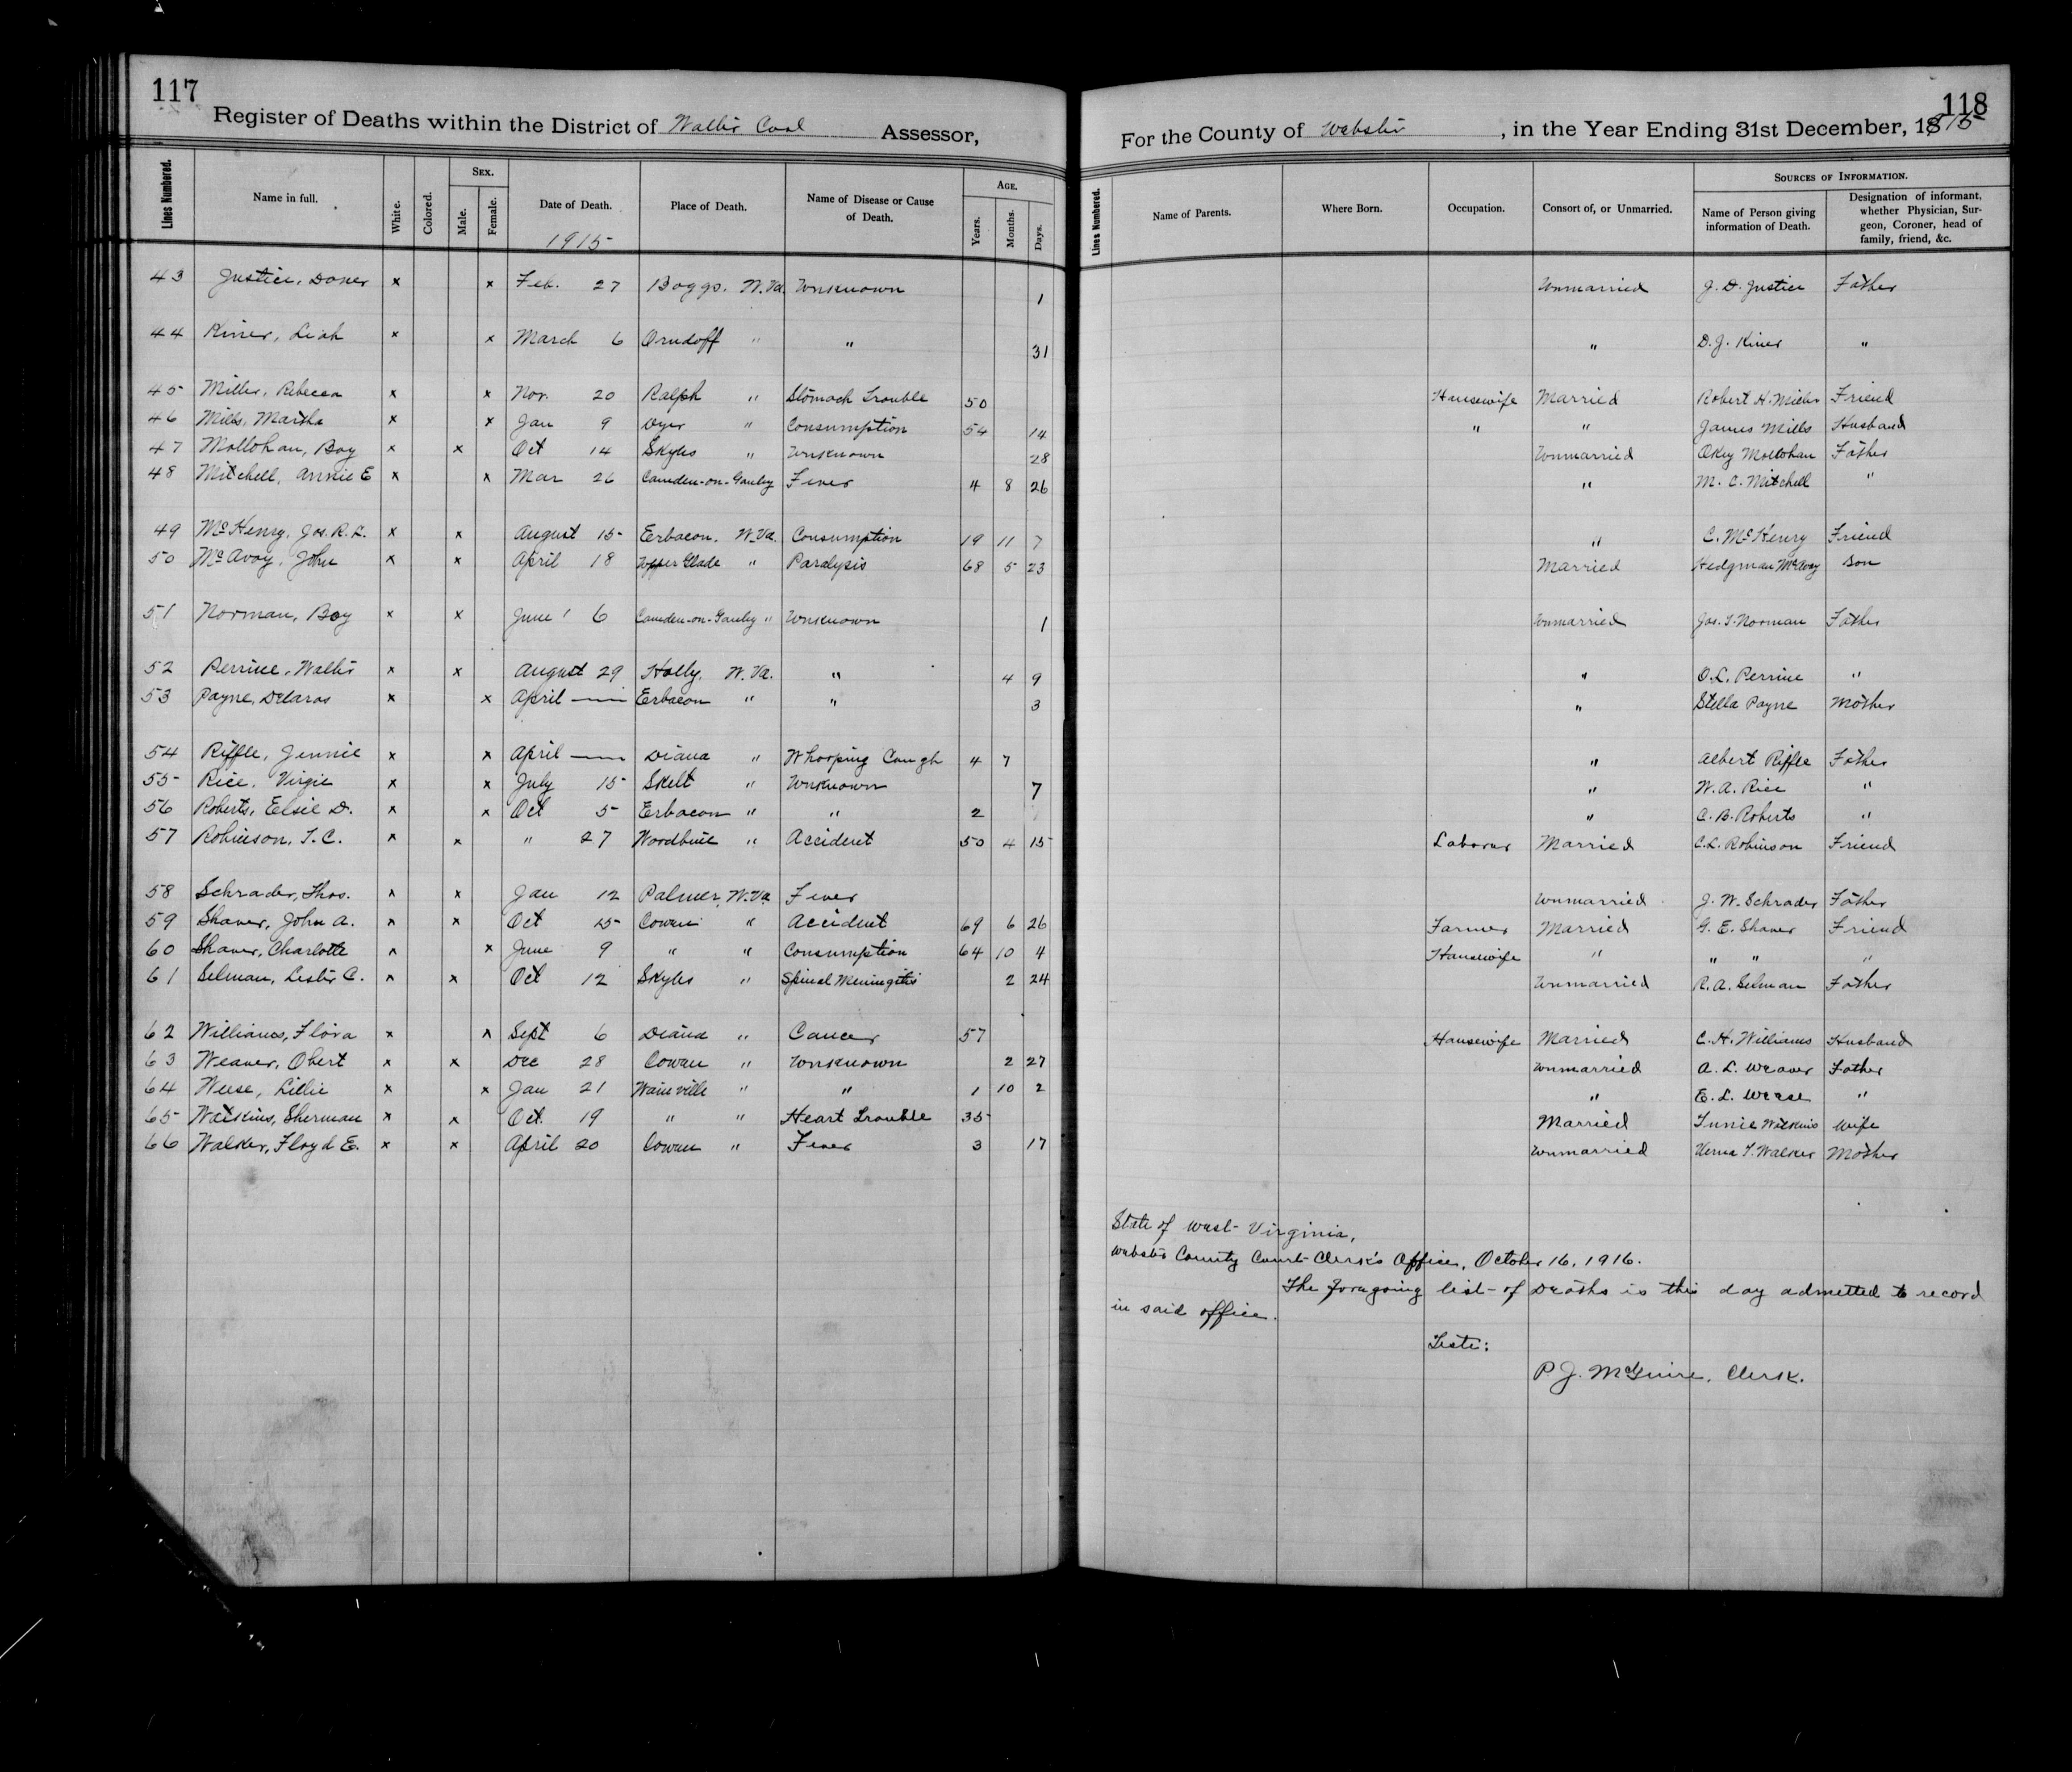 117
Register of Deaths within the District of Walter Cool Assessor,
Lines Numbered. Name in full. White. Colored. Sex. Male. Female. Date of Death. Place of Death. Name of Disease or Cause of Death. Age. Years. Months. Days.
1915
43 Justice, Doxer x x Feb. 27 Boggs, W.Va. Unknown 1
44 Kiner, Leah x x March 6 Orndoff " " 31
45 Miller, Rebecca x x Nov. 20 Ralph " Stomach Trouble 50
46 Mills, Martha x x Jan 9 Dyer " Consumption 54 14
47 Mollohan, Boy x x Oct 14 Skyles " Unknown 28
48 Mitchell, Annie E x x Mar 26 Camden-on-Gauley Fever 4 8 26
49 McHenry, Jos. R. L. x x August 15 Erbacon, W.Va. Consumption 19 11 7
50 McAvoy, John x x April 18 Upper Glade " Paralysis 68 5 23
51 Norman, Boy x x June 6 Camden-on-Gauley " Unknown 1
52 Perrine, Walter x x August 29 Holly, W.Va. " 4 9
53 Payne, Delaros x x April — Erbacon " " 3
54 Riffle, Jennie x x April — Diana " Whooping Cough 4 7
55 Rice, Virgie x x July 15 Skelt " Unknown 7
56 Roberts, Elsie D. x x Oct 5 Erbacon " " 2
57 Robinson, T. C. x x " 27 Woodbine " Accident 50 4 15
58 Schrader, Thos. x x Jan 12 Palmer, W.Va. Fever
59 Shaver, John A. x x Oct 25 Cowen " Accident 69 6 26
60 Shaver, Charlotte x x June 9 " " Consumption 64 10 4
61 Selman, Lester C. x x Oct 12 Skyles " Spinal Meningitis 2 24
62 Williams, Flora x x Sept 6 Diana " Cancer 57
63 Weaver, Obert x x Dec 28 Cowen " Unknown 2 27
64 Weese, Lillie x x Jan 21 Waineville " " 1 10 2
65 Watkins, Sherman x x Oct. 19 " " Heart Trouble 35
66 Walker, Floyd E. x x April 20 Cowen " Fever 3 17
118
For the County of Webster, in the Year Ending 31st December, 1915
Lines Numbered. Name of Parents. Where Born. Occupation. Consort of, or Unmarried. Sources of Information. Name of Person giving information of Death. Designation of informant, whether Physician, Surgeon, Coroner, head of family, friend, &c.
Unmarried J. D. Justice Father
" D. J. Kiner "
Housewife Married Robert H. Miller Friend
" " James Mills Husband
Unmarried Okey Mollohan Father
" M. C. Mitchell "
" C. McHenry Friend
Married Hedgman McAvoy Son
Unmarried Jos. T. Norman Father
" O. L. Perrine "
" Stella Payne Mother
" Albert Riffle Father
" W. A. Rice "
" C. B. Roberts "
Laborer Married C. L. Robinson Friend
Unmarried J. W. Schrader Father
Farmer Married G. E. Shaver Friend
Housewife " " " "
Unmarried R. A. Selman Father
Housewife Married C. H. Williams Husband
Unmarried A. L. Weaver Father
" E. L. Weese "
Married Tunie Watkins Wife
Unmarried Verna T. Walker Mother
State of West-Virginia,
Webster County Court Clerk's Office, October 16, 1916.
The foregoing list of Deaths is this day admitted to record
in said office.
Teste:
P. J. McGuire, Clerk.